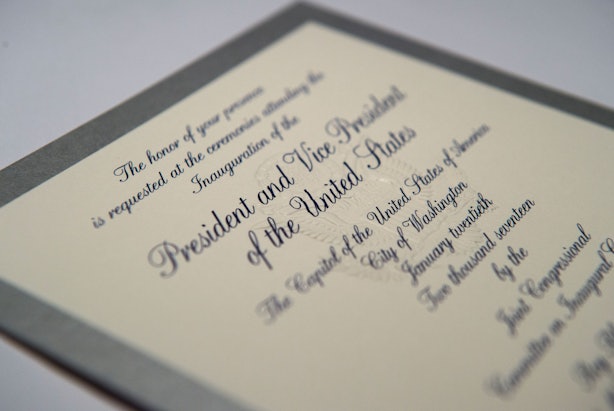 The honor of your presence
is requested at the ceremonies attending the
Inauguration of the
President and Vice President
of the United States
The Capitol of the United States of America
City of Washington
January twentieth
Two thousand seventeen
by the
Joint Congressional
Committee on Inaugural